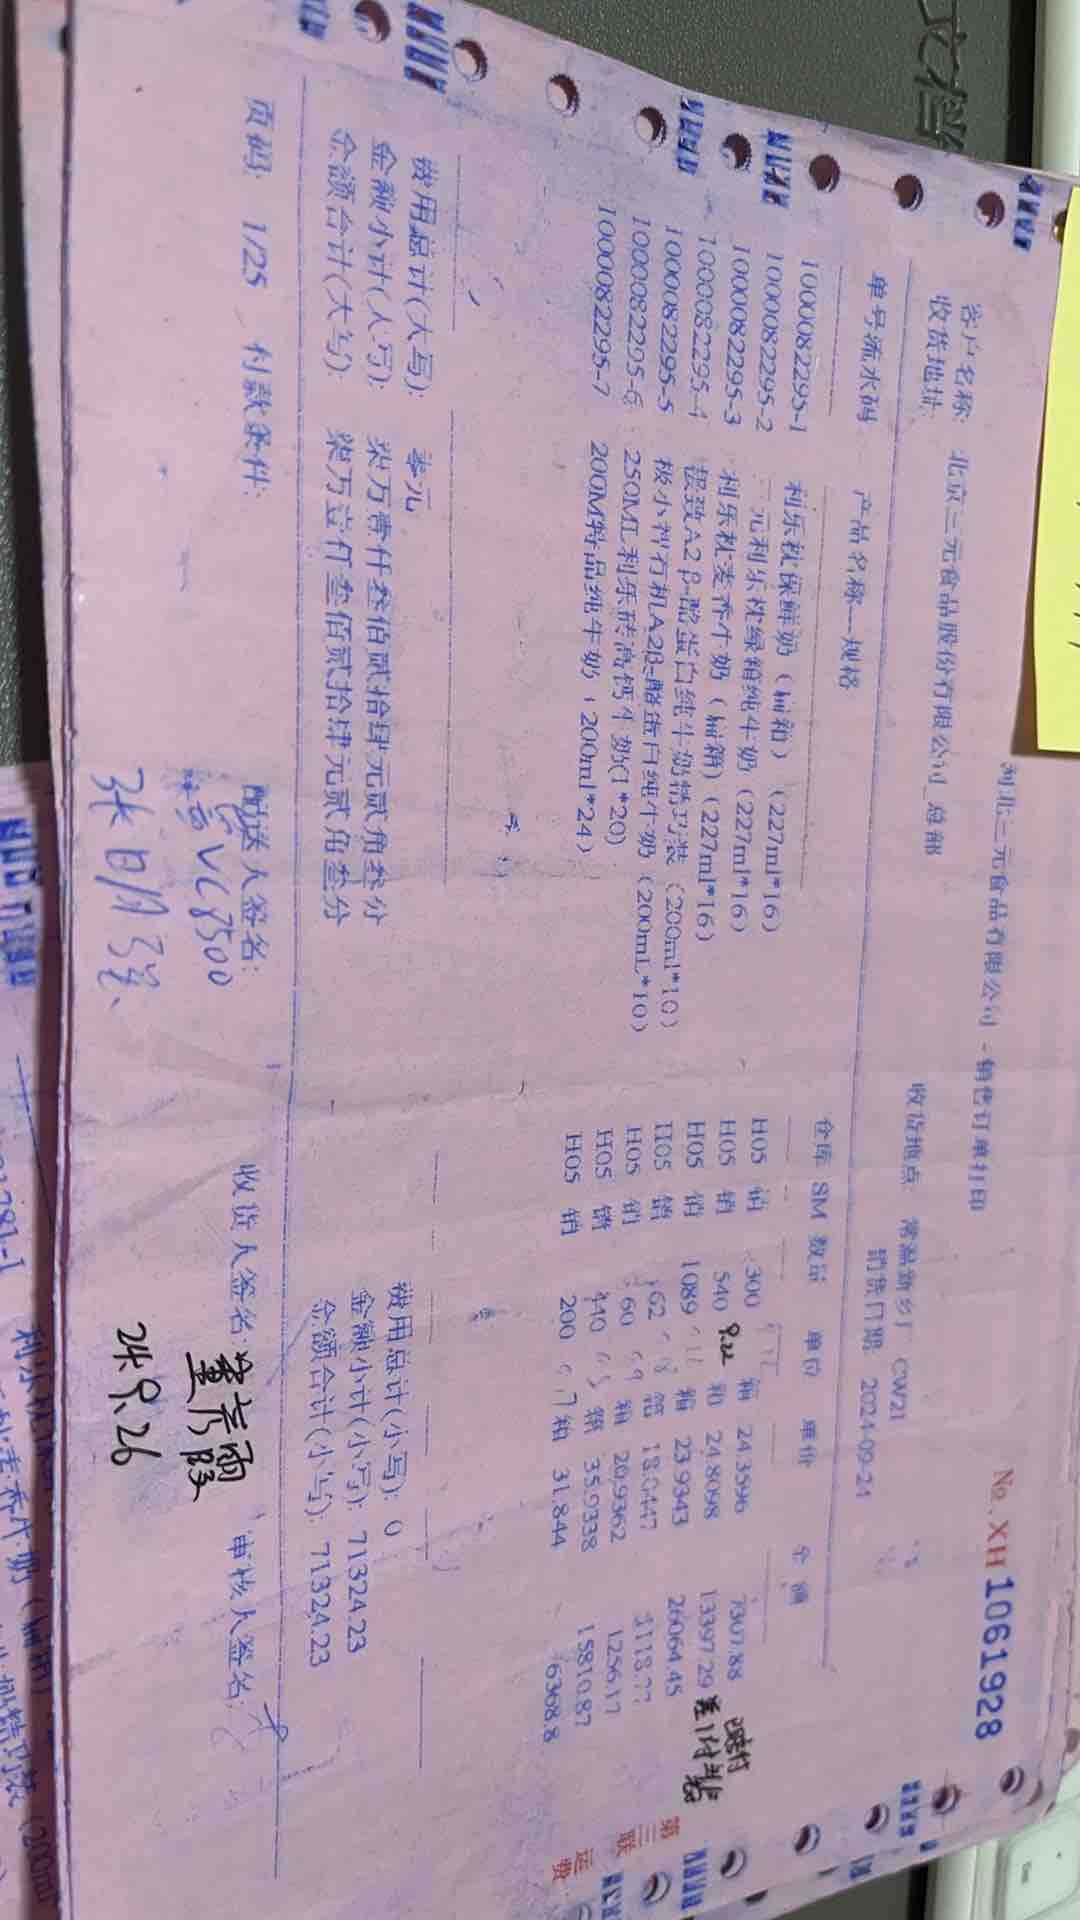 河北三元食品有限公司 - 销售订单打印
No. XH1061928
客户名称: 北京三元食品股份有限公司_总部
收货地点 常温新乡厂 CW21
收货地址:
销货日期: 2024-09-24
单号流水码 产品名称—规格 仓库 SM 数量 单位 单价 金额
1000082295-1 利乐枕保鲜奶（ 箱）（227ml*16） H05 销 300 箱 24.3596 7307.88
1000082295-2 三元利乐枕绿箱纯牛奶（227ml*16） H05 销 540 9.22 箱 24.8098 13397.29
1000082295-3 利乐枕麦香牛奶（ 箱）（227ml*16） H05 销 1089 箱 23.9343 26064.45 差1件
1000082295-4 极致A2 β-酪蛋白纯牛奶精巧装（200ml*10） H05 销 62 箱 18.0447 1118.77
1000082295-5 极小 有机A2β-酪蛋白纯牛奶（200mL*10） H05 销 60 箱 20.9362 1256.17
1000082295-6 250ML利乐砖高钙牛奶(1*20) H05 销 440 箱 35.9338 15810.87
1000082295-7 200M特品纯牛奶（200ml*24） H05 销 200 箱 31.844 6368.8
费用总计(大写): 零元 费用总计(小写): 0
金额小计(大写): 柒万壹仟叁佰贰拾肆元贰角叁分 金额小计(小写): 71324.23
余额合计(大写): 柒万壹仟叁佰贰拾肆元贰角叁分 余额合计(小写): 71324.23
页码: 1/25 付款条件: 配送人签名: 收货人签名: 审核人签名:
VC8500
张明强
24.9.26
第三联 运费